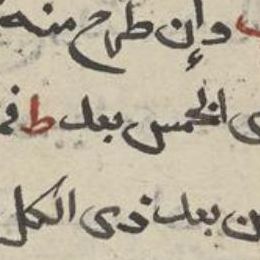 وإن طرح منه
الخمس بعد ط
بعد ذى الكل